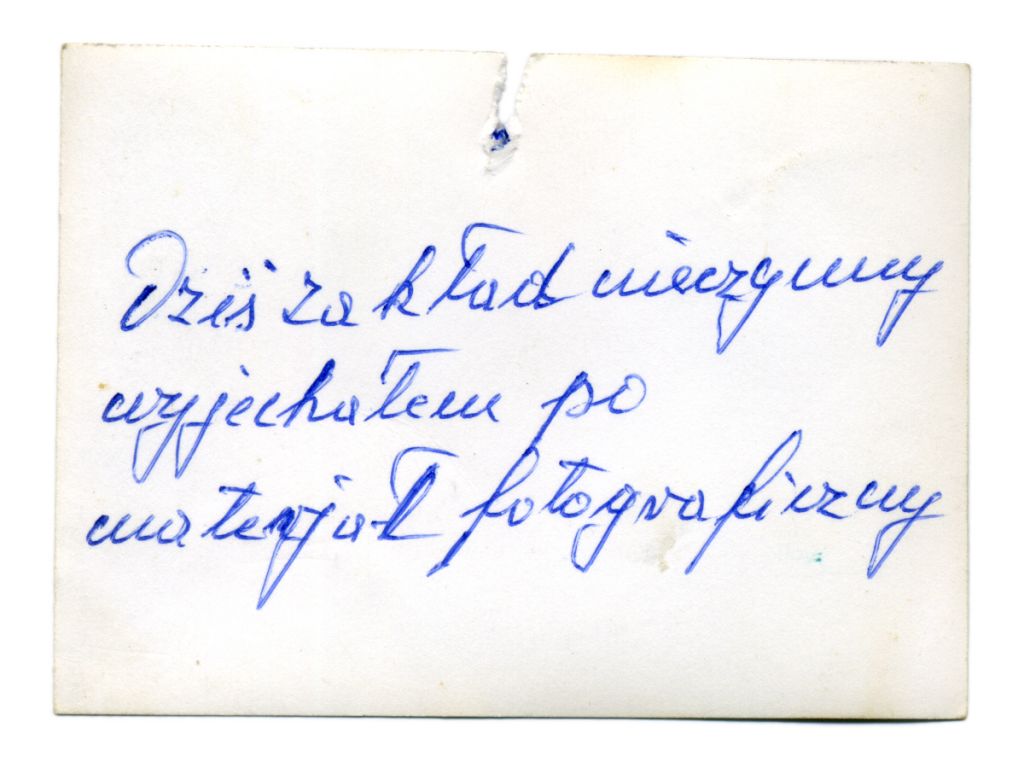 Dziś zakład nieczynny
wyjechałem po
materjał fotograficzny